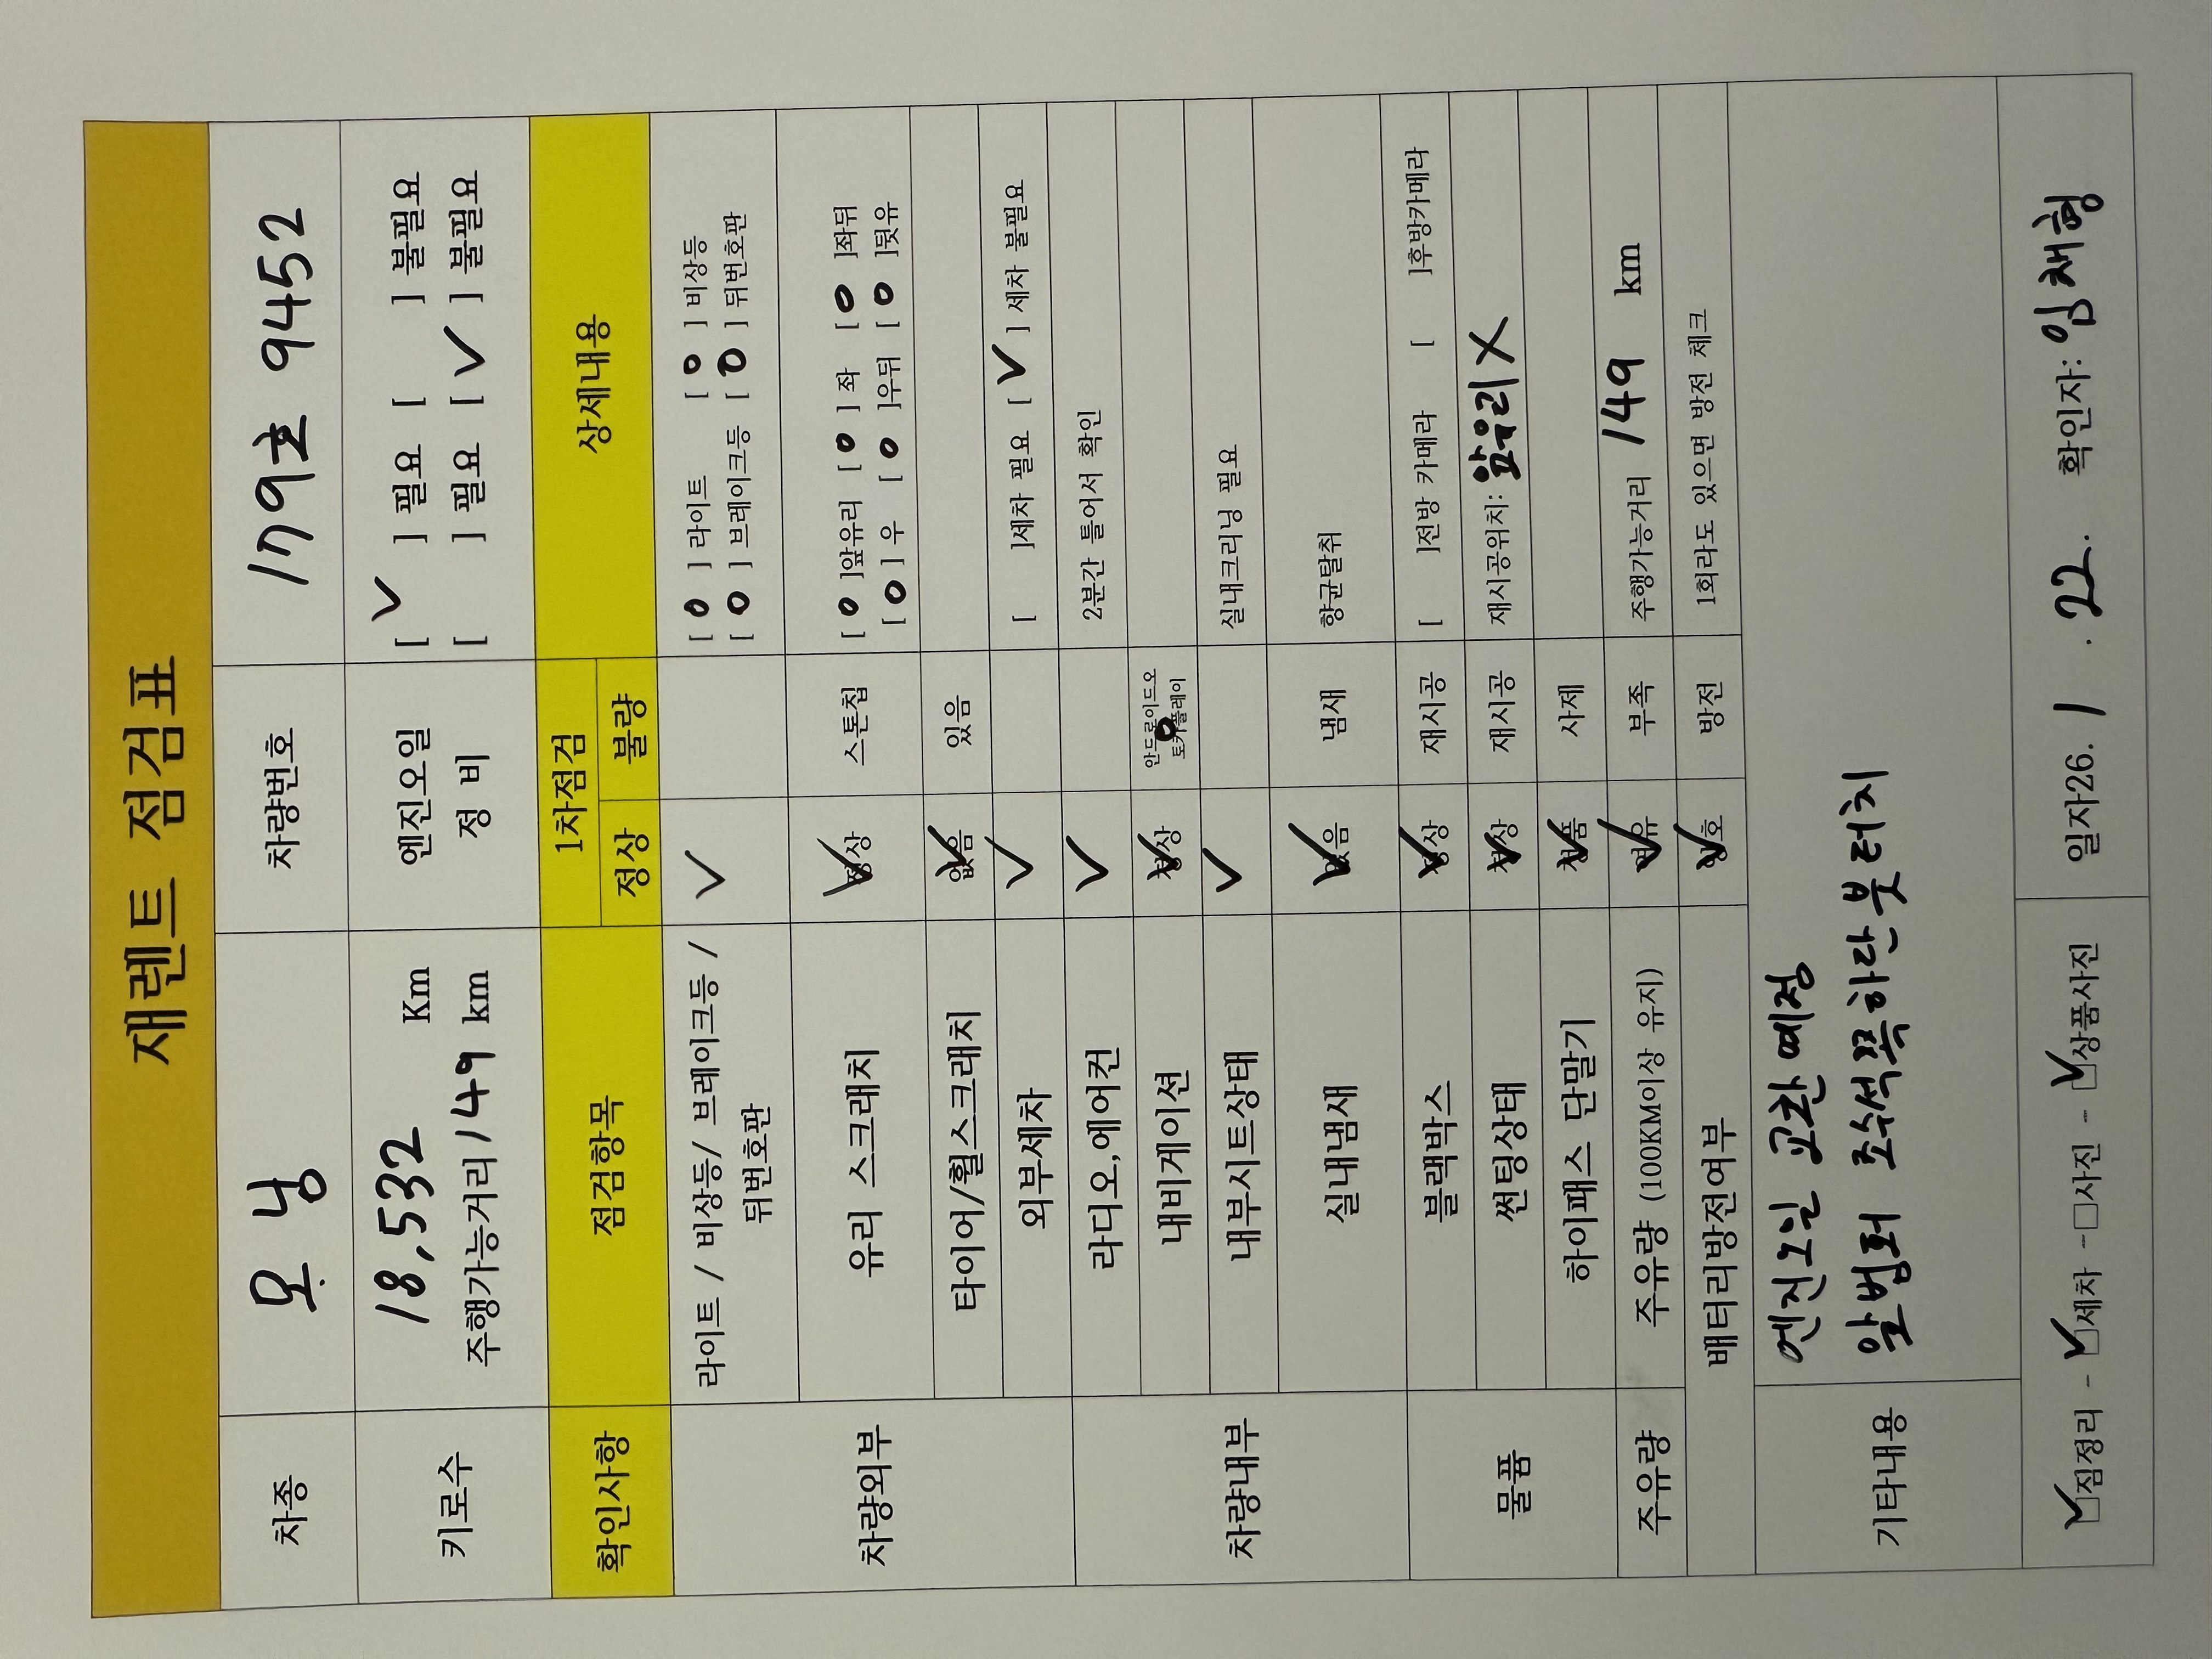 재렌트 점검표
차종 모닝 차량번호 179호 9452
키로수 18,532 Km 엔진오일 [ V ] 필요 [ ] 불필요
주행가능거리 149 km 정 비 [ ] 필요 [ V ] 불필요
확인사항 점검항목 1차점검 상세내용
정상 불량
차량외부 라이트 / 비상등/ 브레이크등 / 뒤번호판 V [ O ] 라이트 [ O ] 비상등
[ O ] 브레이크등 [ O ] 뒤번호판
유리 스크래치 정상 V 스톤칩 [ O ]앞유리 [ O ] 좌 [ O ]좌뒤
[ O ] 우 [ O ]우뒤 [ O ]뒷유
타이어/휠스크래치 없음 V 있음
외부세차 V [ ]세차 필요 [ V ] 세차 불필요
차량내부 라디오,에어컨 V 2분간 틀어서 확인
내비게이션 정상 V 안드로이드오토카플레이 O
내부시트상태 V 실내크리닝 필요
실내냄새 없음 V 냄새 향균탈취
물품 블랙박스 정상 V 재시공 [ ]전방 카메라 [ ]후방카메라
썬팅상태 정상 V 재시공 재시공위치: 앞유리 X
하이패스 단말기 정품 V 사제
주유량 주유량 (100KM이상 유지) 여유 V 부족 주행가능거리 149 km
배터리방전여부 양호 V 방전 1회라도 있으면 방전 체크
기타내용 엔진오일 교환예정
앞범퍼 조수석쪽하단붓터치
☑짐정리 - ☑세차 -□사진 - ☑상품사진 일자26. 1 . 22. 확인자: 임채형